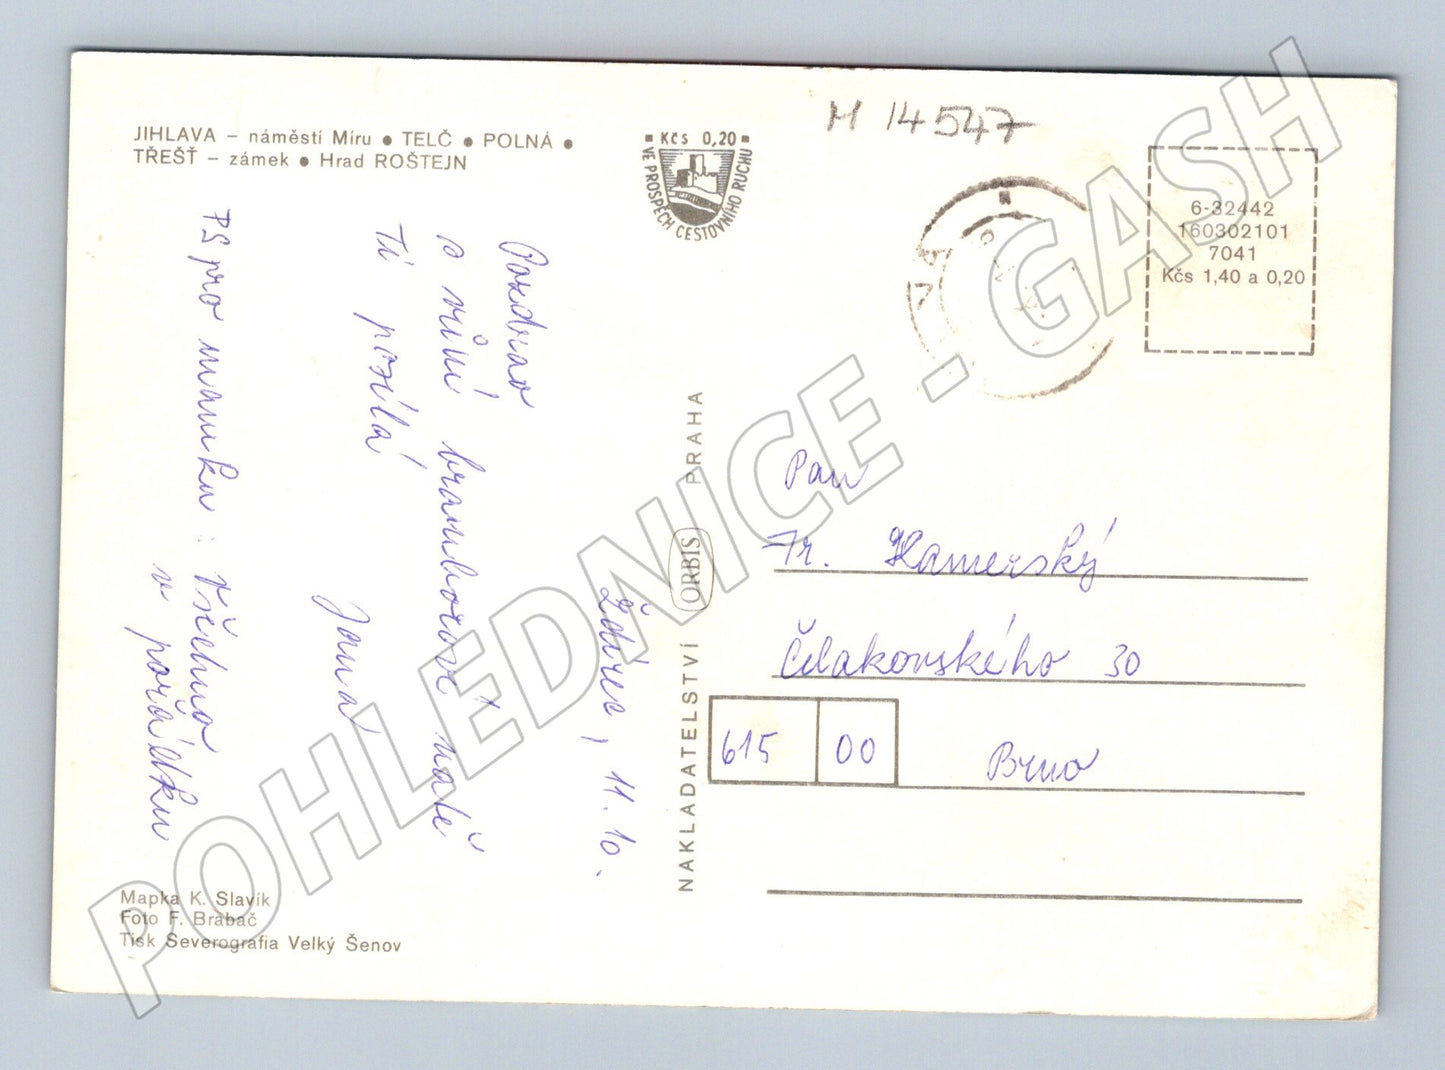 JIHLAVA – náměstí Míru ● TELČ ● POLNÁ ●
TŘEŠŤ – zámek ● Hrad ROŠTEJN
Kčs 0,20
VE PROSPĚCH CESTOVNÍHO RUCHU
M 14547
6-32442
160302101
7041
Kčs 1,40 a 0,20
Ždírec, 11. 10.
Pozdrav
s vůní bramborové natě
Ti posílá
Jana
PS pro mamku: Všechno
v pořádku
NAKLADATELSTVÍ ORBIS PRAHA
Pan
Fr. Hamerský
Čelakovského 30
615 00 Brno
Mapka K. Slavík
Foto F. Brabač
Tisk Severografia Velký Šenov
POHLEDNICE - GASH